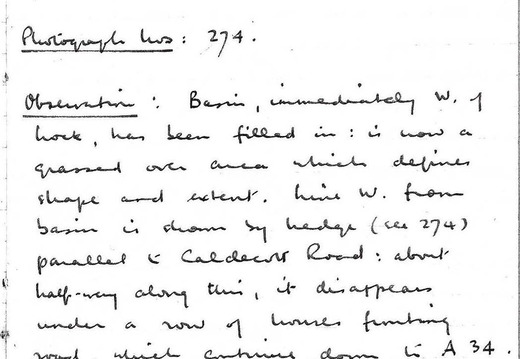 Photograph nos: 274.
Observation: Basin, immediately W. of
lock, has been filled in: is now a
grassed over area which defines
shape and extent. Line W. from
basin is shown by hedge (see 274)
parallel to Caldecott Road: about
half-way along this, it disappears
under a row of houses fronting
road, which continue down to A 34.